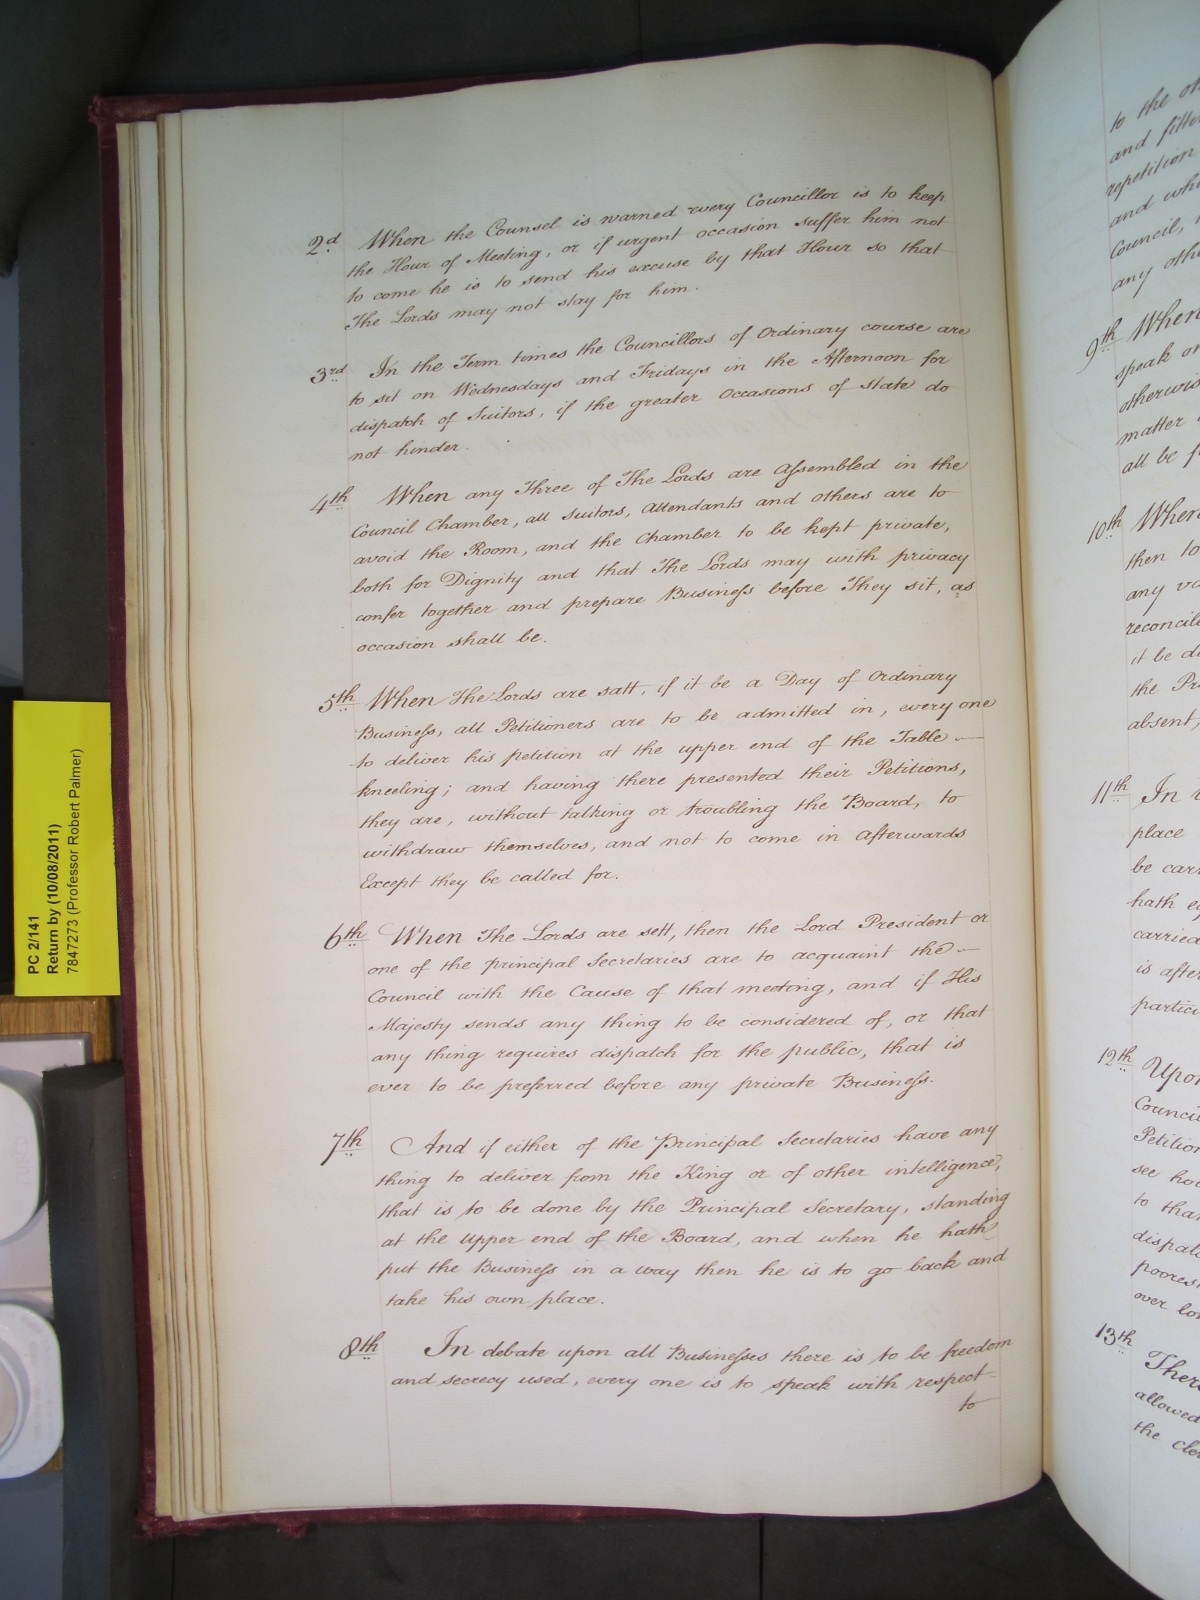 2.d When the Counsel is warned every Councillor is to keep
the Hour of Meeting, or if urgent occasion suffer him not
to come he is to send his excuse by that Hour so that
The Lords may not stay for him.
3rd In the Term times the Councillors of Ordinary course are
to sit on Wednesdays and Fridays in the Afternoon for
dispatch of Suitors, if the greater Occasions of state do
not hinder.
4th When any Three of The Lords are assembled in the
Council Chamber, all Suitors, Attendants and others are to
avoid the Room, and the Chamber to be kept private,
both for Dignity and that The Lords may with privacy
confer together and prepare Business before They sit, as
occasion shall be.
5th When The Lords are satt, if it be a Day of Ordinary
Business, all Petitioners are to be admitted in, every one
to deliver his petition at the upper end of the Table —
kneeling; and having there presented their Petitions,
they are, without talking or troubling the Board, to
withdraw themselves, and not to come in afterwards
Except they be called for.
6th When The Lords are sett, then the Lord President or
one of the principal Secretaries are to acquaint the —
Council with the Cause of that meeting, and if His
Majesty sends any thing to be considered of, or that
any thing requires dispatch for the public, that is
ever to be preferred before any private Business.
7th And if either of the Principal Secretaries have any
thing to deliver from the King or of other intelligence,
that is to be done by the Principal Secretary, standing
at the upper end of the Board, and when he hath
put the Business in a way then he is to go back and
take his own place.
8th In debate upon all Businesses there is to be freedom
and secrecy used, every one is to speak with respect
to
PC 2/141
Return by (10/08/2011)
7847273 (Professor Robert Palmer)
to the
and
repetition
and
Council,
any
9th When
speak
matter
all be
10th When
then to
any
it be
the
absent,
11th In
place
be
hath
carried
is
12th Upon
see
to
over
13th
allowed
the